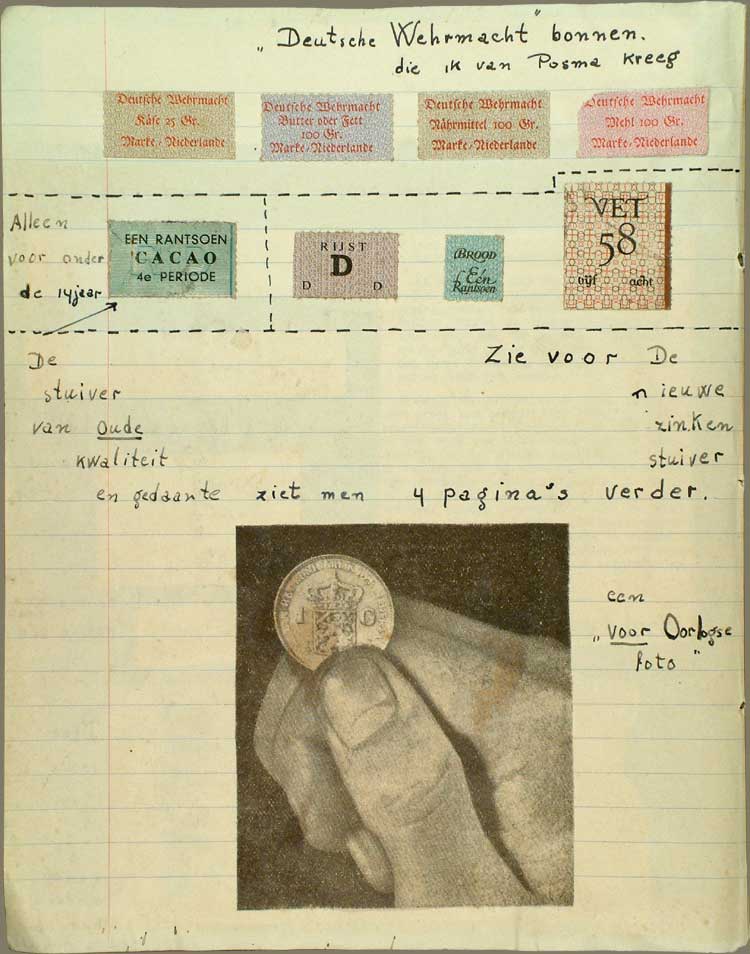 „Deutsche Wehrmacht" bonnen.
die ik van Posma kreeg
Deutsche Wehrmacht
Käse 25 Gr.
Marke-Niederlande
Deutsche Wehrmacht
Butter oder Fett
100 Gr.
Marke-Niederlande
Deutsche Wehrmacht
Nährmittel 100 Gr.
Marke-Niederlande
Deutsche Wehrmacht
Mehl 100 Gr.
Marke-Niederlande
Alleen
voor onder
de 14 jaar
EEN RANTSOEN
CACAO
4e PERIODE
RIJST
D
D D
BROOD
Eén
Rantsoen
VET
58
vijf acht
De
stuiver
van Oude
kwaliteit
en gedaante
Zie voor De
nieuwe
zinken
stuiver
ziet men 4 pagina's verder.
1 G
een
„voor Oorlogse
foto"